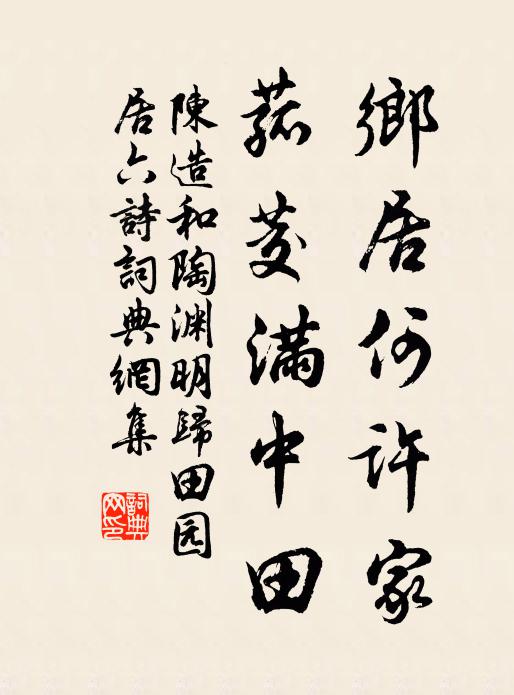 鄉居何許家
菰茭滿中田
陳造和陶渊明歸田园
居六詩詞典網集
詞典
网印